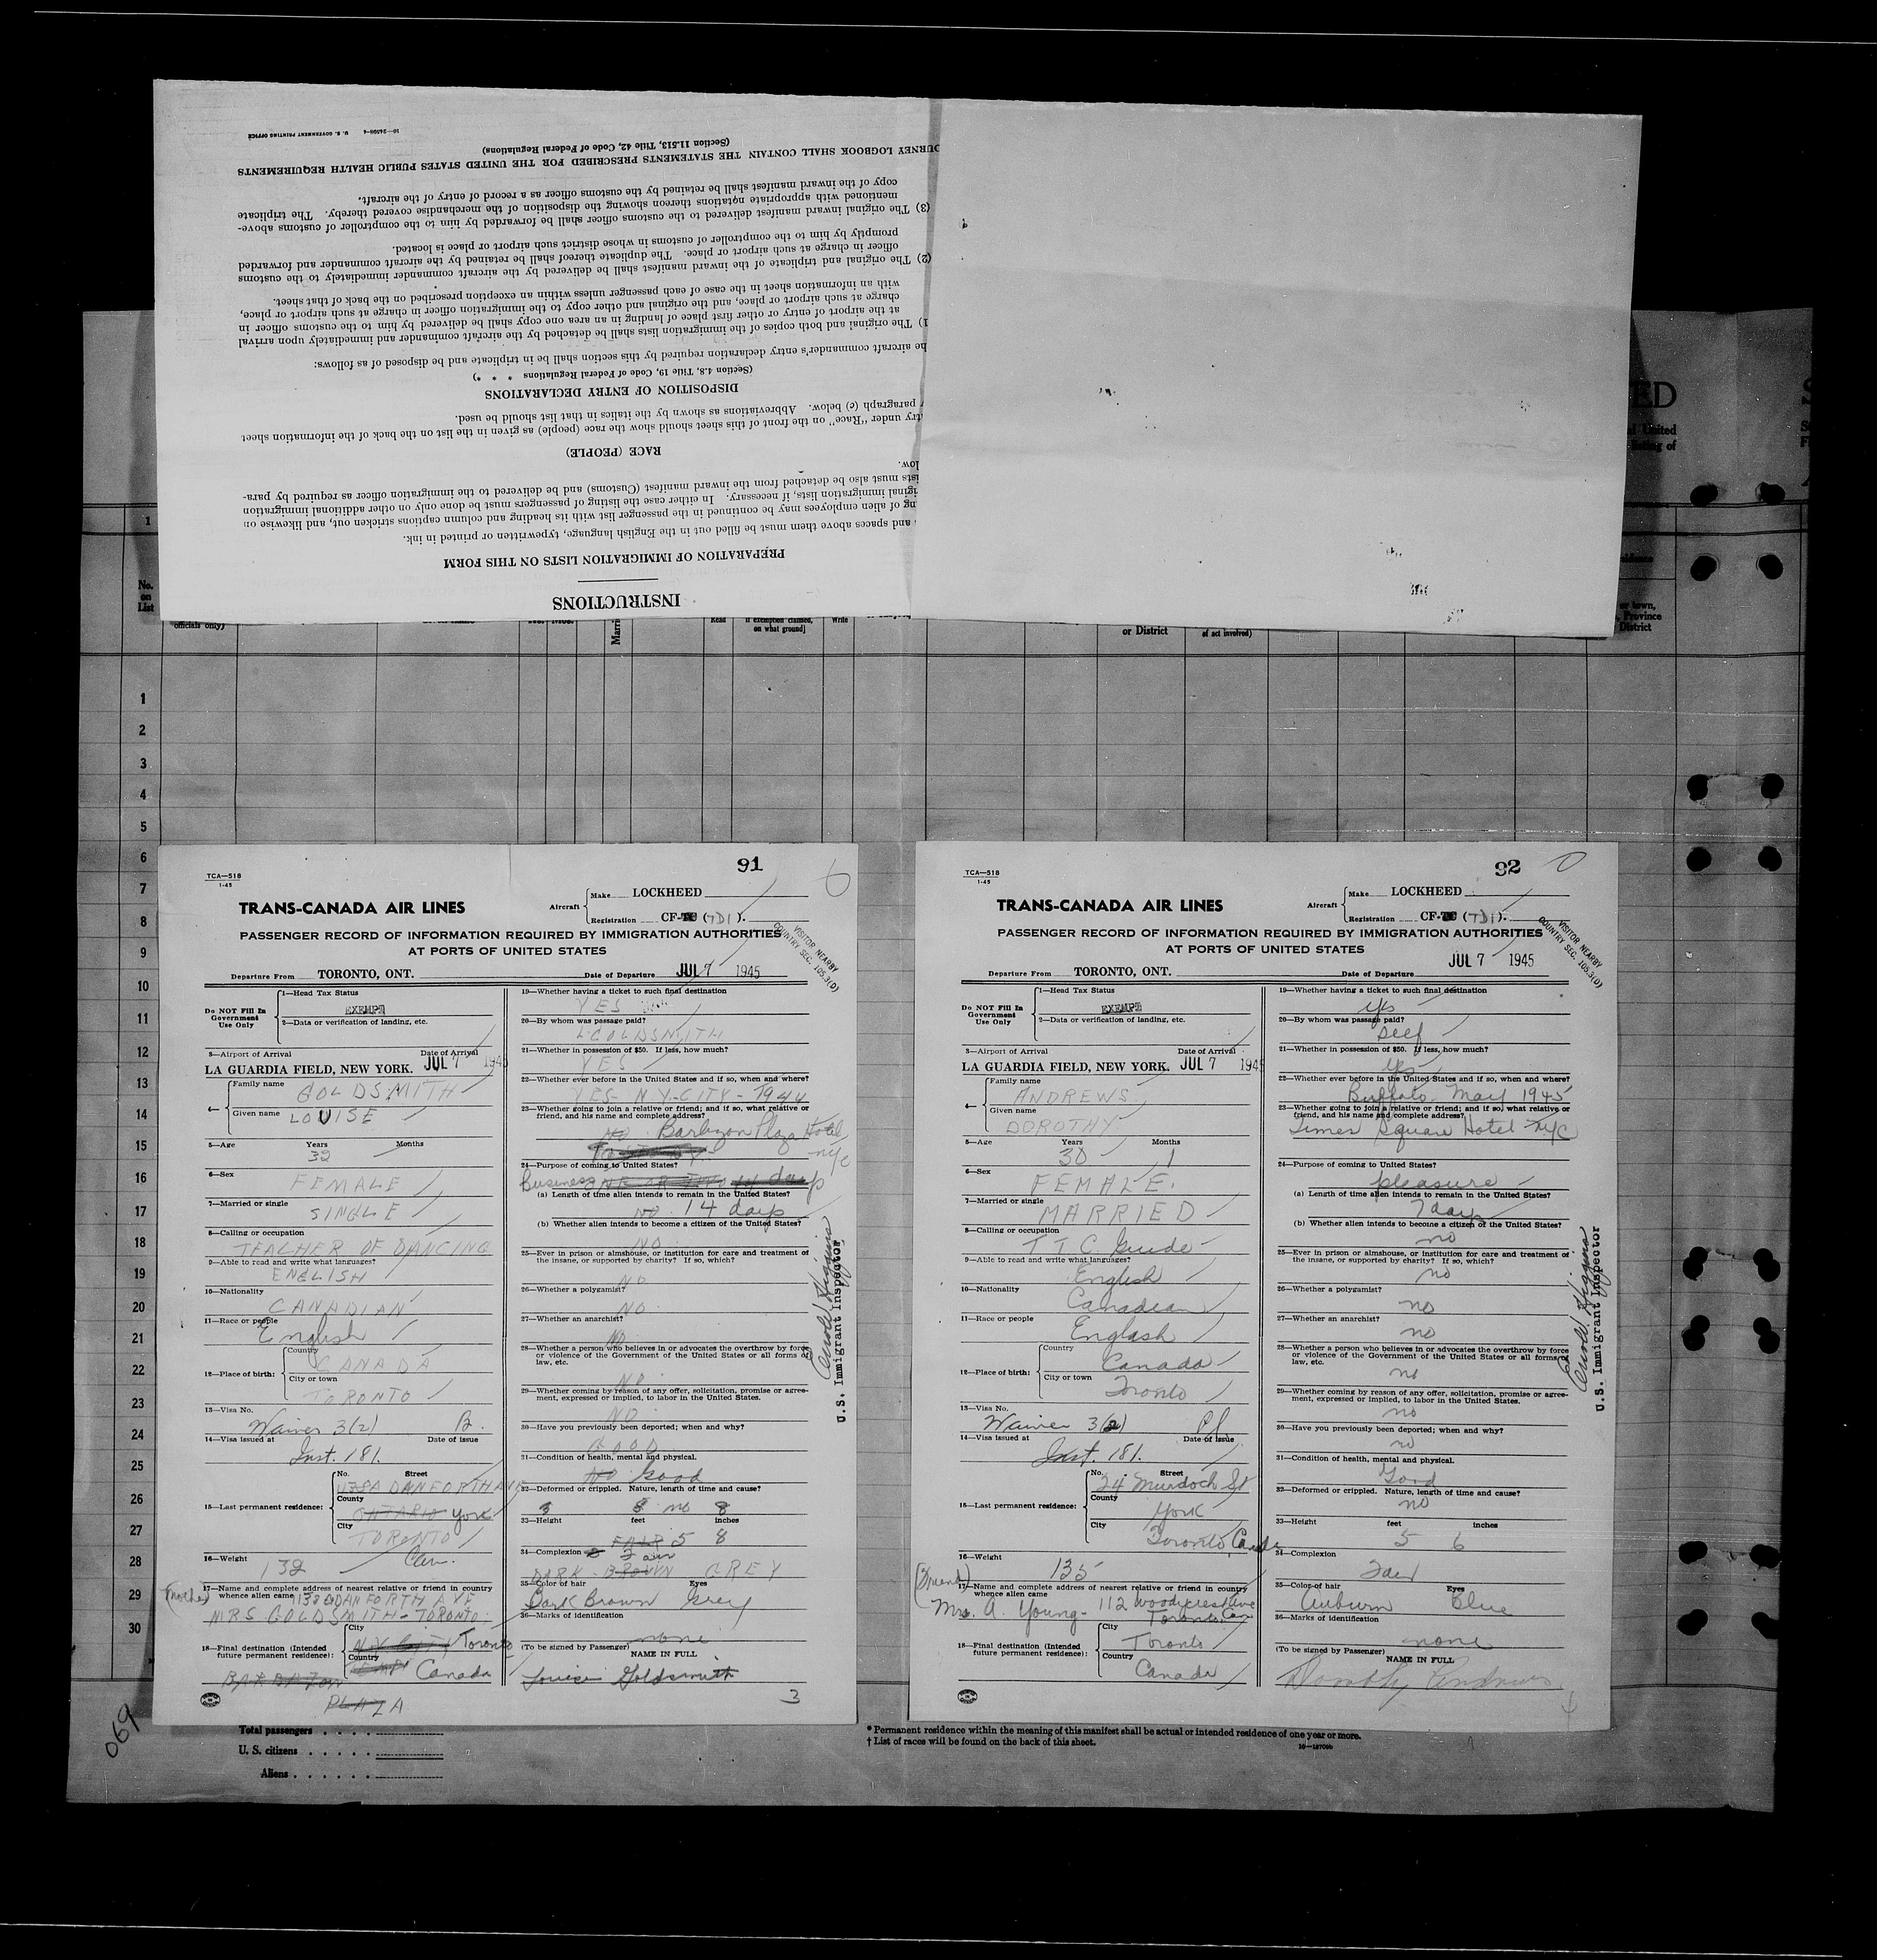 INSTRUCTIONS
PREPARATION OF IMMIGRATION LISTS ON THIS FORM
and spaces above them must be filled out in the English language, typewritten or printed in ink.
ng of alien employees may be continued in the passenger list with its heading and column captions stricken out, and likewise on
iginal immigration lists, if necessary. In either case the listing of passengers must be done only on other additional immigration
ists must also be detached from the inward manifest (Customs) and be delivered to the immigration officer as required by para-
low.
RACE (PEOPLE)
try under "Race" on the front of this sheet should show the race (people) as given in the list on the back of the information sheet
paragraph (c) below. Abbreviations as shown by the italics in that list should be used.
DISPOSITION OF ENTRY DECLARATIONS
(Section 4.8, Title 19, Code of Federal Regulations * * *)
he aircraft commander's entry declaration required by this section shall be in triplicate and be disposed of as follows:
1) The original and both copies of the immigration lists shall be detached by the aircraft commander and immediately upon arrival
at the airport of entry or other first place of landing in an area one copy shall be delivered by him to the customs officer in
charge at such airport or place, and the original and other copy to the immigration officer in charge at such airport or place,
with an information sheet in the case of each passenger unless within an exception prescribed on the back of that sheet.
(2) The original and triplicate of the inward manifest shall be delivered by the aircraft commander immediately to the customs
officer in charge at such airport or place. The duplicate thereof shall be retained by the aircraft commander and forwarded
promptly by him to the comptroller of customs in whose district such airport or place is located.
(3) The original inward manifest delivered to the customs officer shall be forwarded by him to the comptroller of customs above-
mentioned with appropriate notations thereon showing the disposition of the merchandise covered thereby. The triplicate
copy of the inward manifest shall be retained by the customs officer as a record of entry of the aircraft.
OURNEY LOGBOOK SHALL CONTAIN THE STATEMENTS PRESCRIBED FOR THE UNITED STATES PUBLIC HEALTH REQUIREMENTS
(Section 11.513, Title 42, Code of Federal Regulations)
U. S. GOVERNMENT PRINTING OFFICE
ED
United
No.
on
List
officials only)
Read
on what ground]
Write
or District
of act involved)
or town,
Province
District
1
1
2
3
4
5
6
7
8
9
10
11
12
13
14
15
16
17
18
19
20
21
22
23
24
25
26
27
28
29
30
91
TCA—518
1-45
TRANS-CANADA AIR LINES
Aircraft
Make LOCKHEED
Registration CF- (TDI).
PASSENGER RECORD OF INFORMATION REQUIRED BY IMMIGRATION AUTHORITIES
AT PORTS OF UNITED STATES
VISITOR NEARBY
COUNTRY SEC. 105.3(D)
Departure From TORONTO, ONT. Date of Departure JUL 7 1945
Do NOT Fill In
Government
Use Only
1—Head Tax Status
EXEMPT
2—Data or verification of landing, etc.
3—Airport of Arrival Date of Arrival
LA GUARDIA FIELD, NEW YORK. JUL 7 1945
4— Family name GOLDSMITH
Given name LOUISE
5—Age Years Months
32
6—Sex FEMALE
7—Married or single SINGLE
8—Calling or occupation
TEACHER OF DANCING
9—Able to read and write what languages?
ENGLISH
10—Nationality CANADIAN
11—Race or people English
12—Place of birth: Country CANADA
City or town TORONTO
13—Visa No.
Waiver 3(2)
14—Visa issued at Date of issue
Inst. 181.
15—Last permanent residence: No. Street
DANFORTH AVE
County
ONTARIO York
City
TORONTO
Can.
16—Weight 132
17—Name and complete address of nearest relative or friend in country
whence alien came
(Mother) DANFORTH AVE
MRS GOLDSMITH - TORONTO
18—Final destination (Intended
future permanent residence):
City N.Y. City Toronto
Country Canada
PLAZA
19—Whether having a ticket to such final destination
YES
20—By whom was passage paid?
L GOLDSMITH
21—Whether in possession of $50. If less, how much?
YES
22—Whether ever before in the United States and if so, when and where?
YES - N Y - CITY - 1944
23—Whether going to join a relative or friend; and if so, what relative or
friend, and his name and complete address?
NO Barbizon Plaza Hotel
NYC
24—Purpose of coming to United States?
Business
(a) Length of time alien intends to remain in the United States?
NO 14 days
(b) Whether alien intends to become a citizen of the United States?
NO
25—Ever in prison or almshouse, or institution for care and treatment of
the insane, or supported by charity? If so, which?
NO
26—Whether a polygamist?
NO
27—Whether an anarchist?
NO
28—Whether a person who believes in or advocates the overthrow by force
or violence of the Government of the United States or all forms of
law, etc.
NO
29—Whether coming by reason of any offer, solicitation, promise or agree-
ment, expressed or implied, to labor in the United States.
NO
30—Have you previously been deported; when and why?
GOOD
31—Condition of health, mental and physical.
NO Good
32—Deformed or crippled. Nature, length of time and cause?
no 8
33—Height feet inches
FAIR 5 8
34—Complexion
Fair
DARK - BROWN GREY
35—Color of hair Eyes
Dark Brown Grey
36—Marks of identification
none
(To be signed by Passenger) NAME IN FULL
Louise Goldsmith
3
U.S. Immigrant Inspector
92
TCA—518
1-45
TRANS-CANADA AIR LINES
Aircraft
Make LOCKHEED
Registration CF- (TDI).
PASSENGER RECORD OF INFORMATION REQUIRED BY IMMIGRATION AUTHORITIES
AT PORTS OF UNITED STATES
VISITOR NEARBY
COUNTRY SEC. 105.3(D)
Departure From TORONTO, ONT. Date of Departure JUL 7 1945
Do NOT Fill In
Government
Use Only
1—Head Tax Status
EXEMPT
2—Data or verification of landing, etc.
3—Airport of Arrival Date of Arrival
LA GUARDIA FIELD, NEW YORK. JUL 7 1945
4— Family name ANDREWS
Given name DOROTHY
5—Age Years Months
30 1
6—Sex FEMALE
7—Married or single MARRIED
8—Calling or occupation
T T C Guide
9—Able to read and write what languages?
English
10—Nationality Canadian
11—Race or people English
12—Place of birth: Country Canada
City or town Toronto
13—Visa No.
Waiver 3(2)
14—Visa issued at Date of Issue
Inst. 181.
15—Last permanent residence: No. Street
24 Murdoch St
County
York
City
Toronto, Canada
16—Weight 135
(Friend)
17—Name and complete address of nearest relative or friend in country
whence alien came
Mrs. A. Young - 112 Woodycrest Ave
Toronto Can
18—Final destination (Intended
future permanent residence):
City Toronto
Country Canada
19—Whether having a ticket to such final destination
yes
20—By whom was passage paid?
self
21—Whether in possession of $50. If less, how much?
yes
22—Whether ever before in the United States and if so, when and where?
Buffalo - May 1945
23—Whether going to join a relative or friend; and if so, what relative or
friend, and his name and complete address?
Times Square Hotel NYC
24—Purpose of coming to United States?
pleasure
(a) Length of time alien intends to remain in the United States?
7 days
(b) Whether alien intends to become a citizen of the United States?
no
25—Ever in prison or almshouse, or institution for care and treatment of
the insane, or supported by charity? If so, which?
no
26—Whether a polygamist?
no
27—Whether an anarchist?
no
28—Whether a person who believes in or advocates the overthrow by force
or violence of the Government of the United States or all forms of
law, etc.
no
29—Whether coming by reason of any offer, solicitation, promise or agree-
ment, expressed or implied, to labor in the United States.
no
30—Have you previously been deported; when and why?
no
31—Condition of health, mental and physical.
Good
32—Deformed or crippled. Nature, length of time and cause?
no
33—Height feet inches
5 6
34—Complexion
Fair
35—Color of hair Eyes
Auburn Blue
36—Marks of identification
none
(To be signed by Passenger) NAME IN FULL
Dorothy Andrews
U.S. Immigrant Inspector
069
Total passengers
U. S. citizens
Aliens
* Permanent residence within the meaning of this manifest shall be actual or intended residence of one year or more.
† List of races will be found on the back of this sheet.